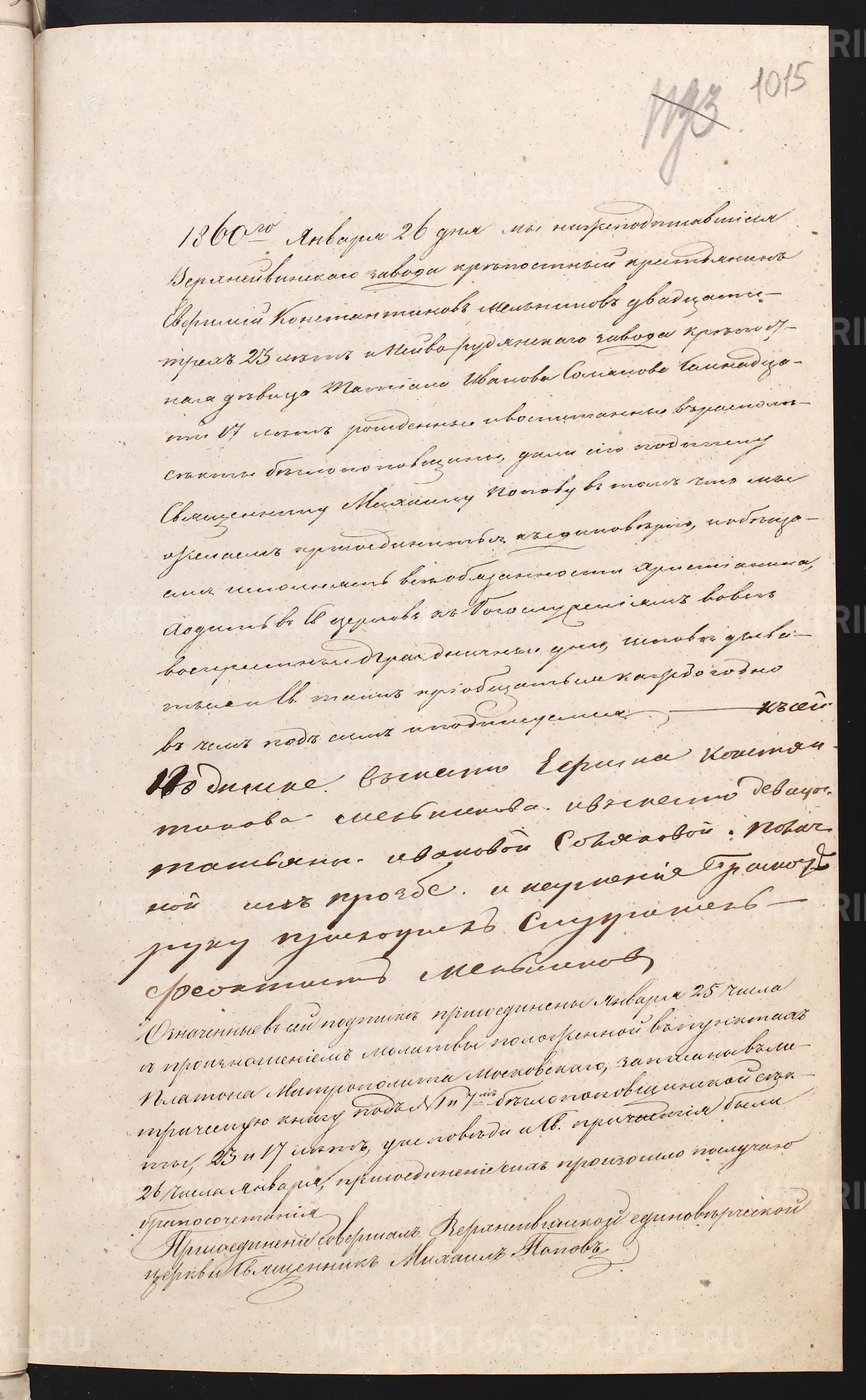 1015
1860го Января 26 дня мы нижеподписавшиеся
Верхнейвинскаго завода крепостный крестьянинъ
Евфимій Константиновъ Мельниковъ двадцати
трехъ 23 летъ и Нейво-рудянскаго завода крепост-
ная девица Татіана Иванова Сомакова семнадца-
ти 17 летъ рожденные и воспитанные въ расколе
секты беглопоповщины, дали сію подписку
Священнику Михаилу Попову въ томъ что мы
желаемъ присоединиться къ единоверію, и обязуе-
мся исполнять все обязанности христіанина,
ходить въ Св. церковь къ Богослуженіямъ во все
воскресные и праздничные дни, исповедыва-
ться и Св. таинъ пріобщаться каждогодно
въ чемъ подъ симъ и подписуемся. къ сей
Подписке. вместо Ефима Констян-
тинова Мельникова. и вместо девицы
татьяны. ивановой Сомаковой. по лич-
ной ихъ прозбе. и неуменія Грамоте
руку приложилъ Служитель
Феоктистъ Мельниковъ
Означенные въ сей подписке присоединены Января 25 числа
съ произношеніемъ молитвы положенной въ пунктахъ
Платона Митрополита Московскаго, записаны въ ме-
трическую книгу подъ № 1 и 7мъ беглопоповщинской сек-
ты, 23 и 17 летъ, у исповеди и Св. причастія были
26 числа Января, присоединение сихъ произошло по случаю
бракосочетанія
Присоединеніе совершалъ Верхнейвинской единоверческой
церкви Священникъ Михаилъ Поповъ